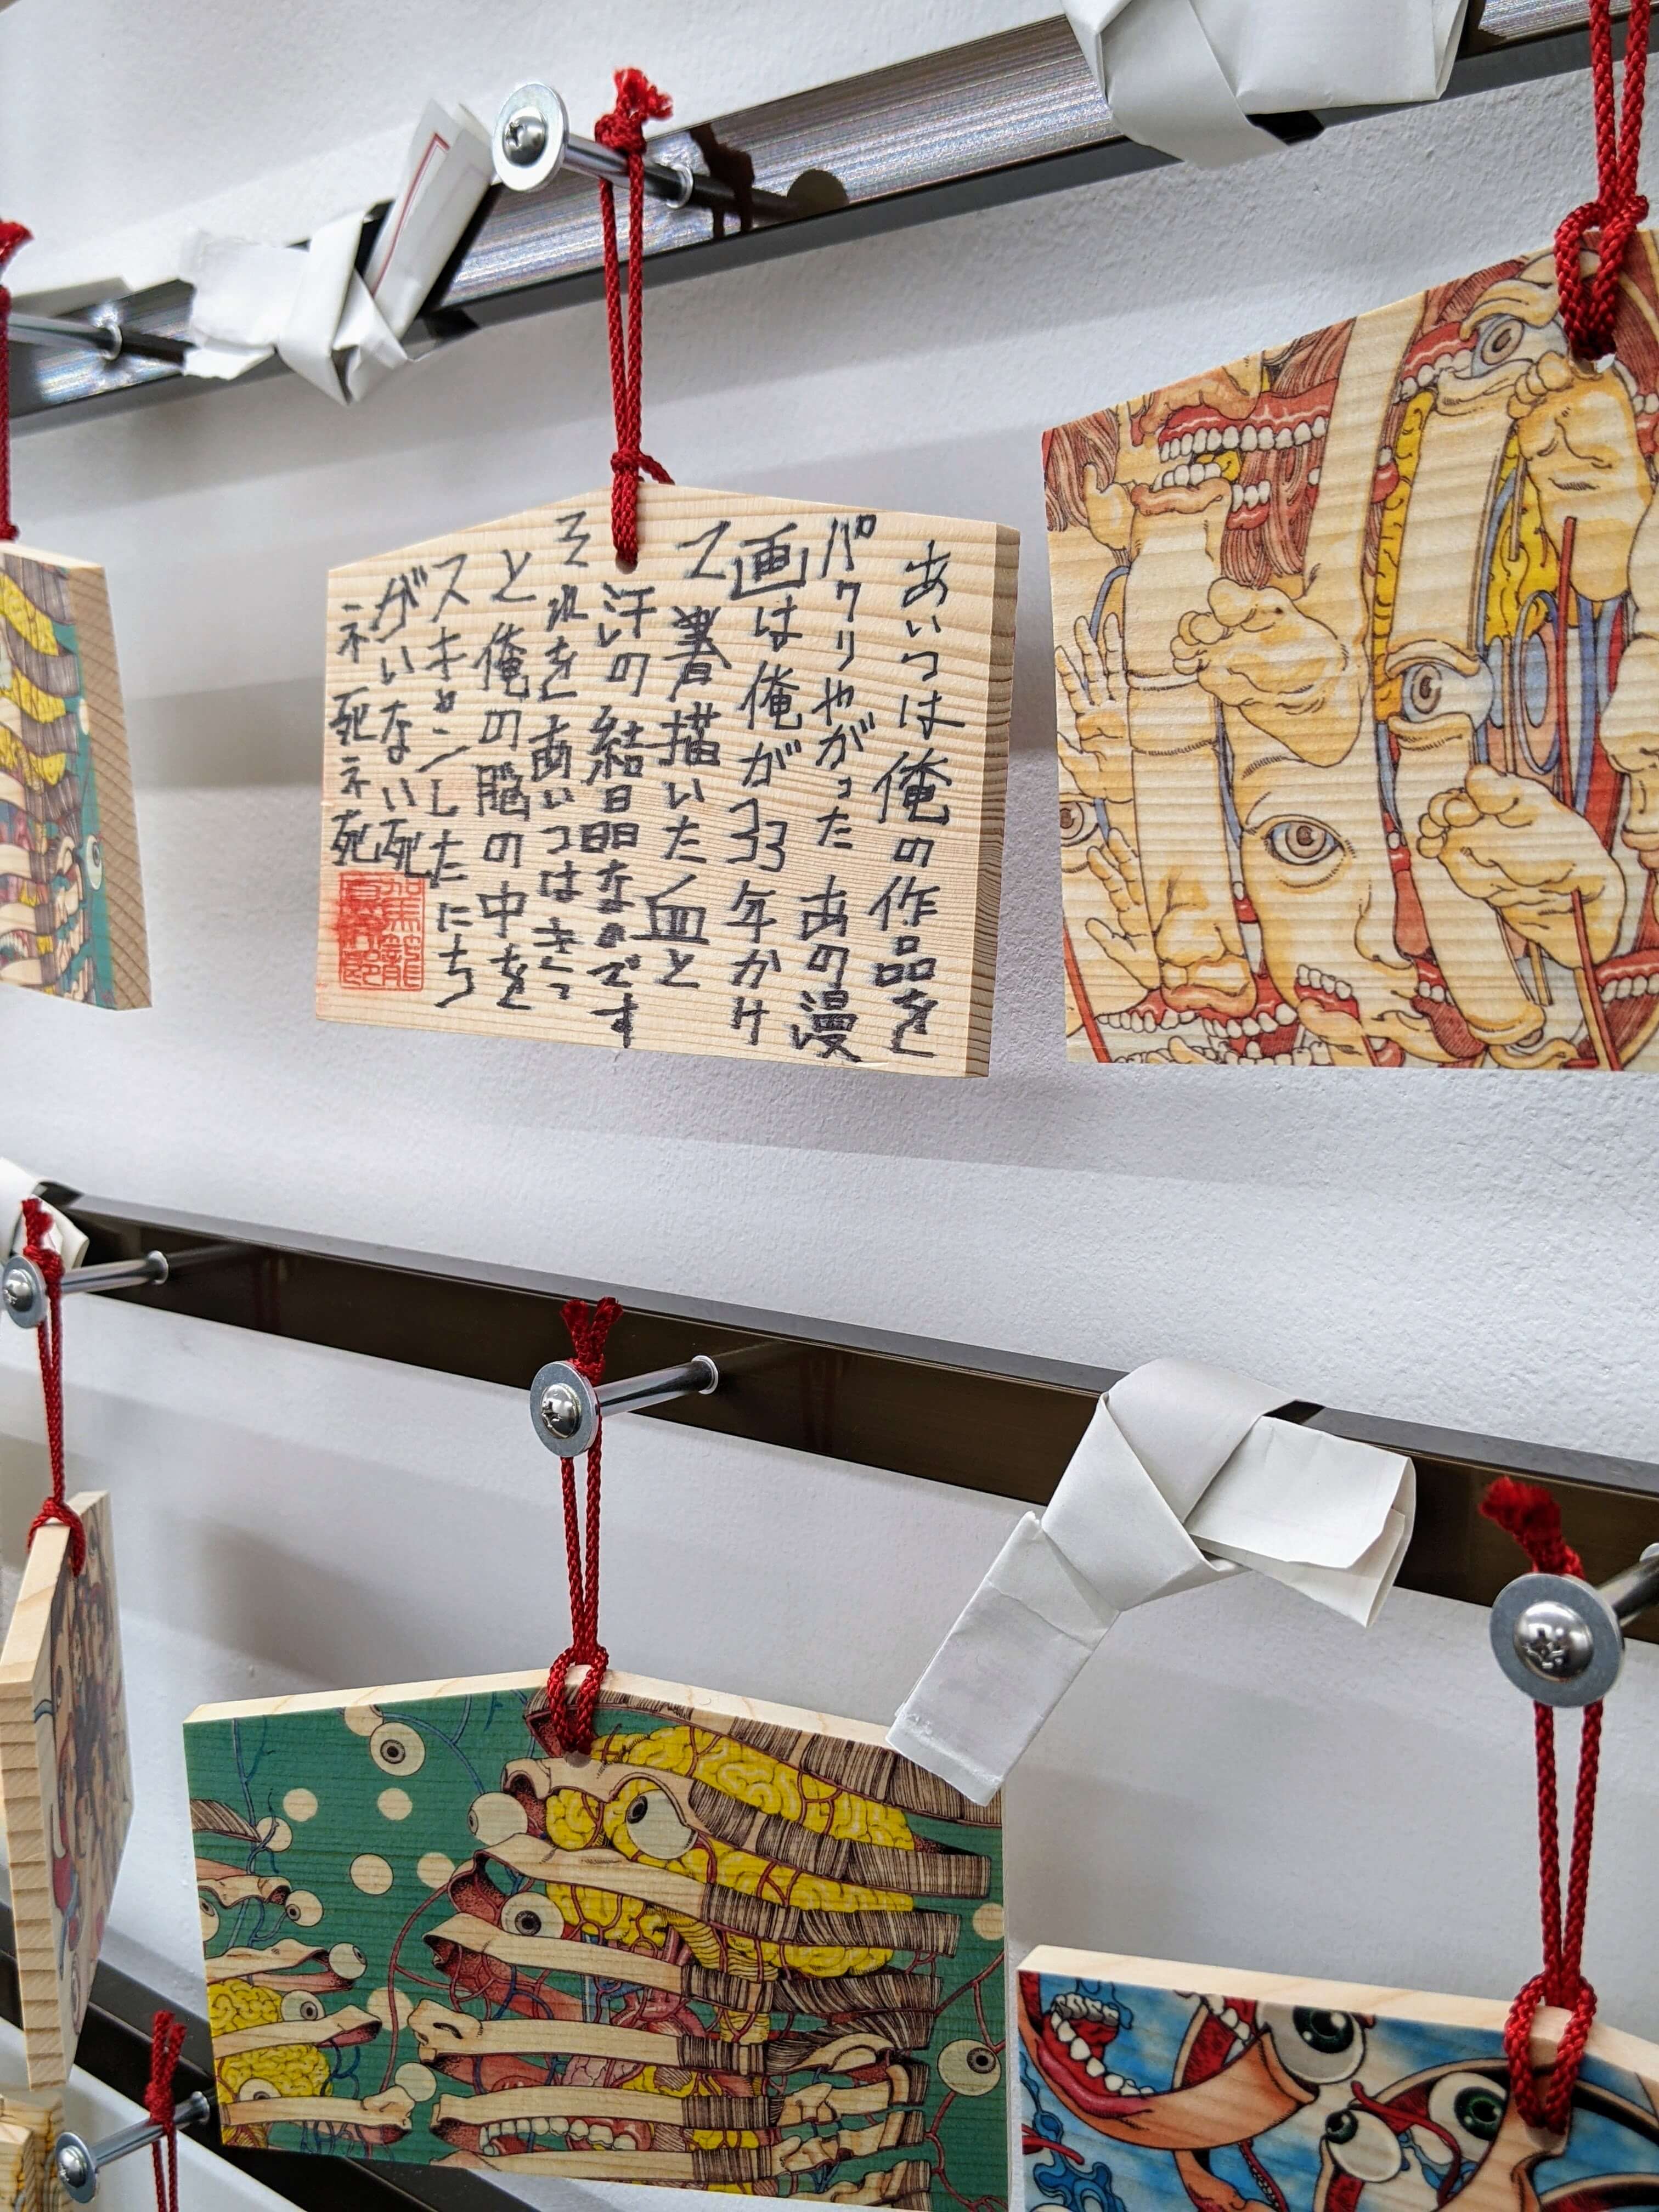 あいつは俺の作品を
パクリやがった あの漫
画は俺が33年かけ
て 描いた 血と
汗の結晶なのです
それをあいつはきっ
と俺の脳の中を
スキャンしたにち
がいない死
ネ死ネ死